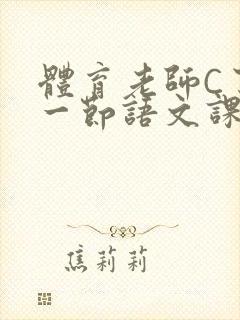 體育老師C
一節語文課
焦莉莉